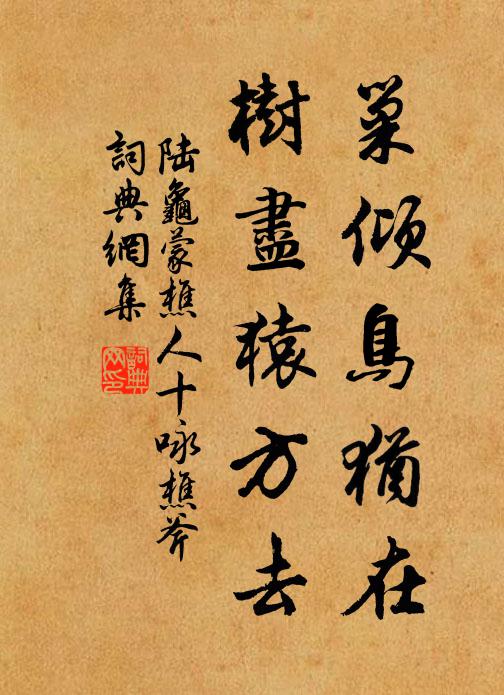 巢傾鳥猶在
樹盡猿方去
陸龜蒙樵人十咏樵斧
詞典網集
詞典網印